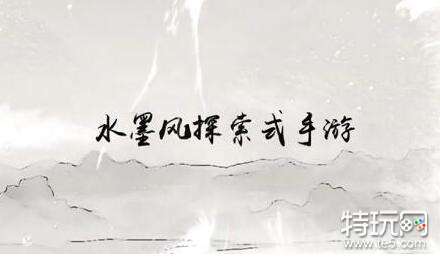 水墨风探索式手游
特玩网
www.te5.com